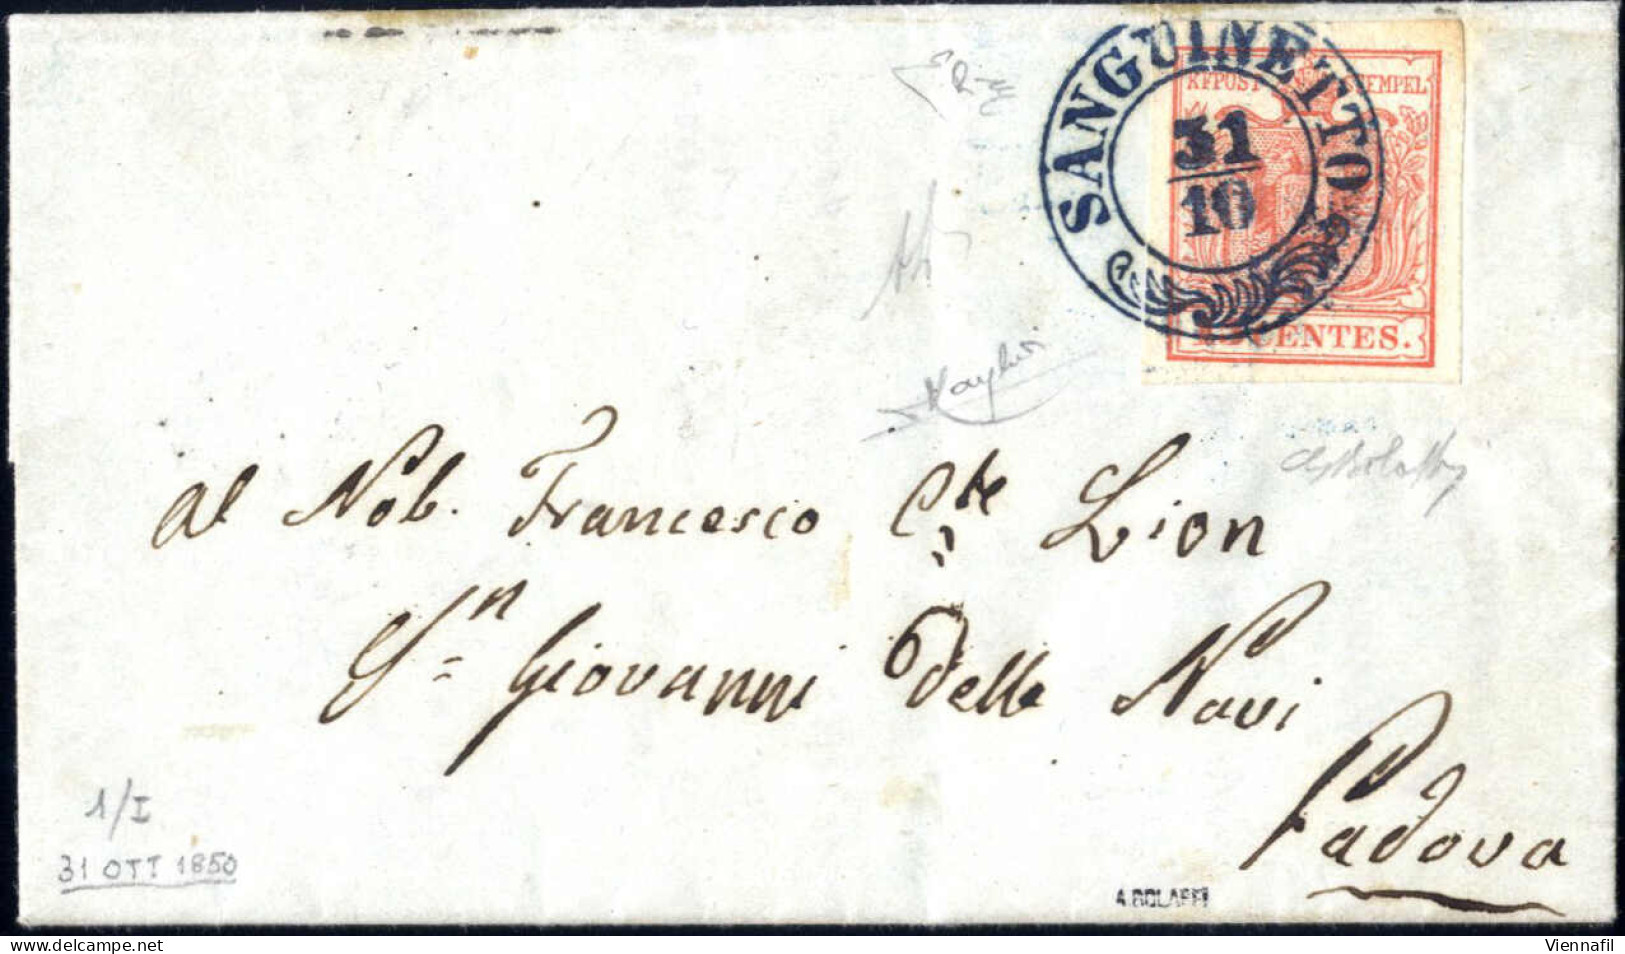 SANGUINETTO
31
10
KKPOST STEMPEL
CENTES.
al Nob. Francesco Cte Lion
Sn Giovanni delle Navi
Padova
1/I
31 OTT 1850
A.BOLAFFI
Viennafil